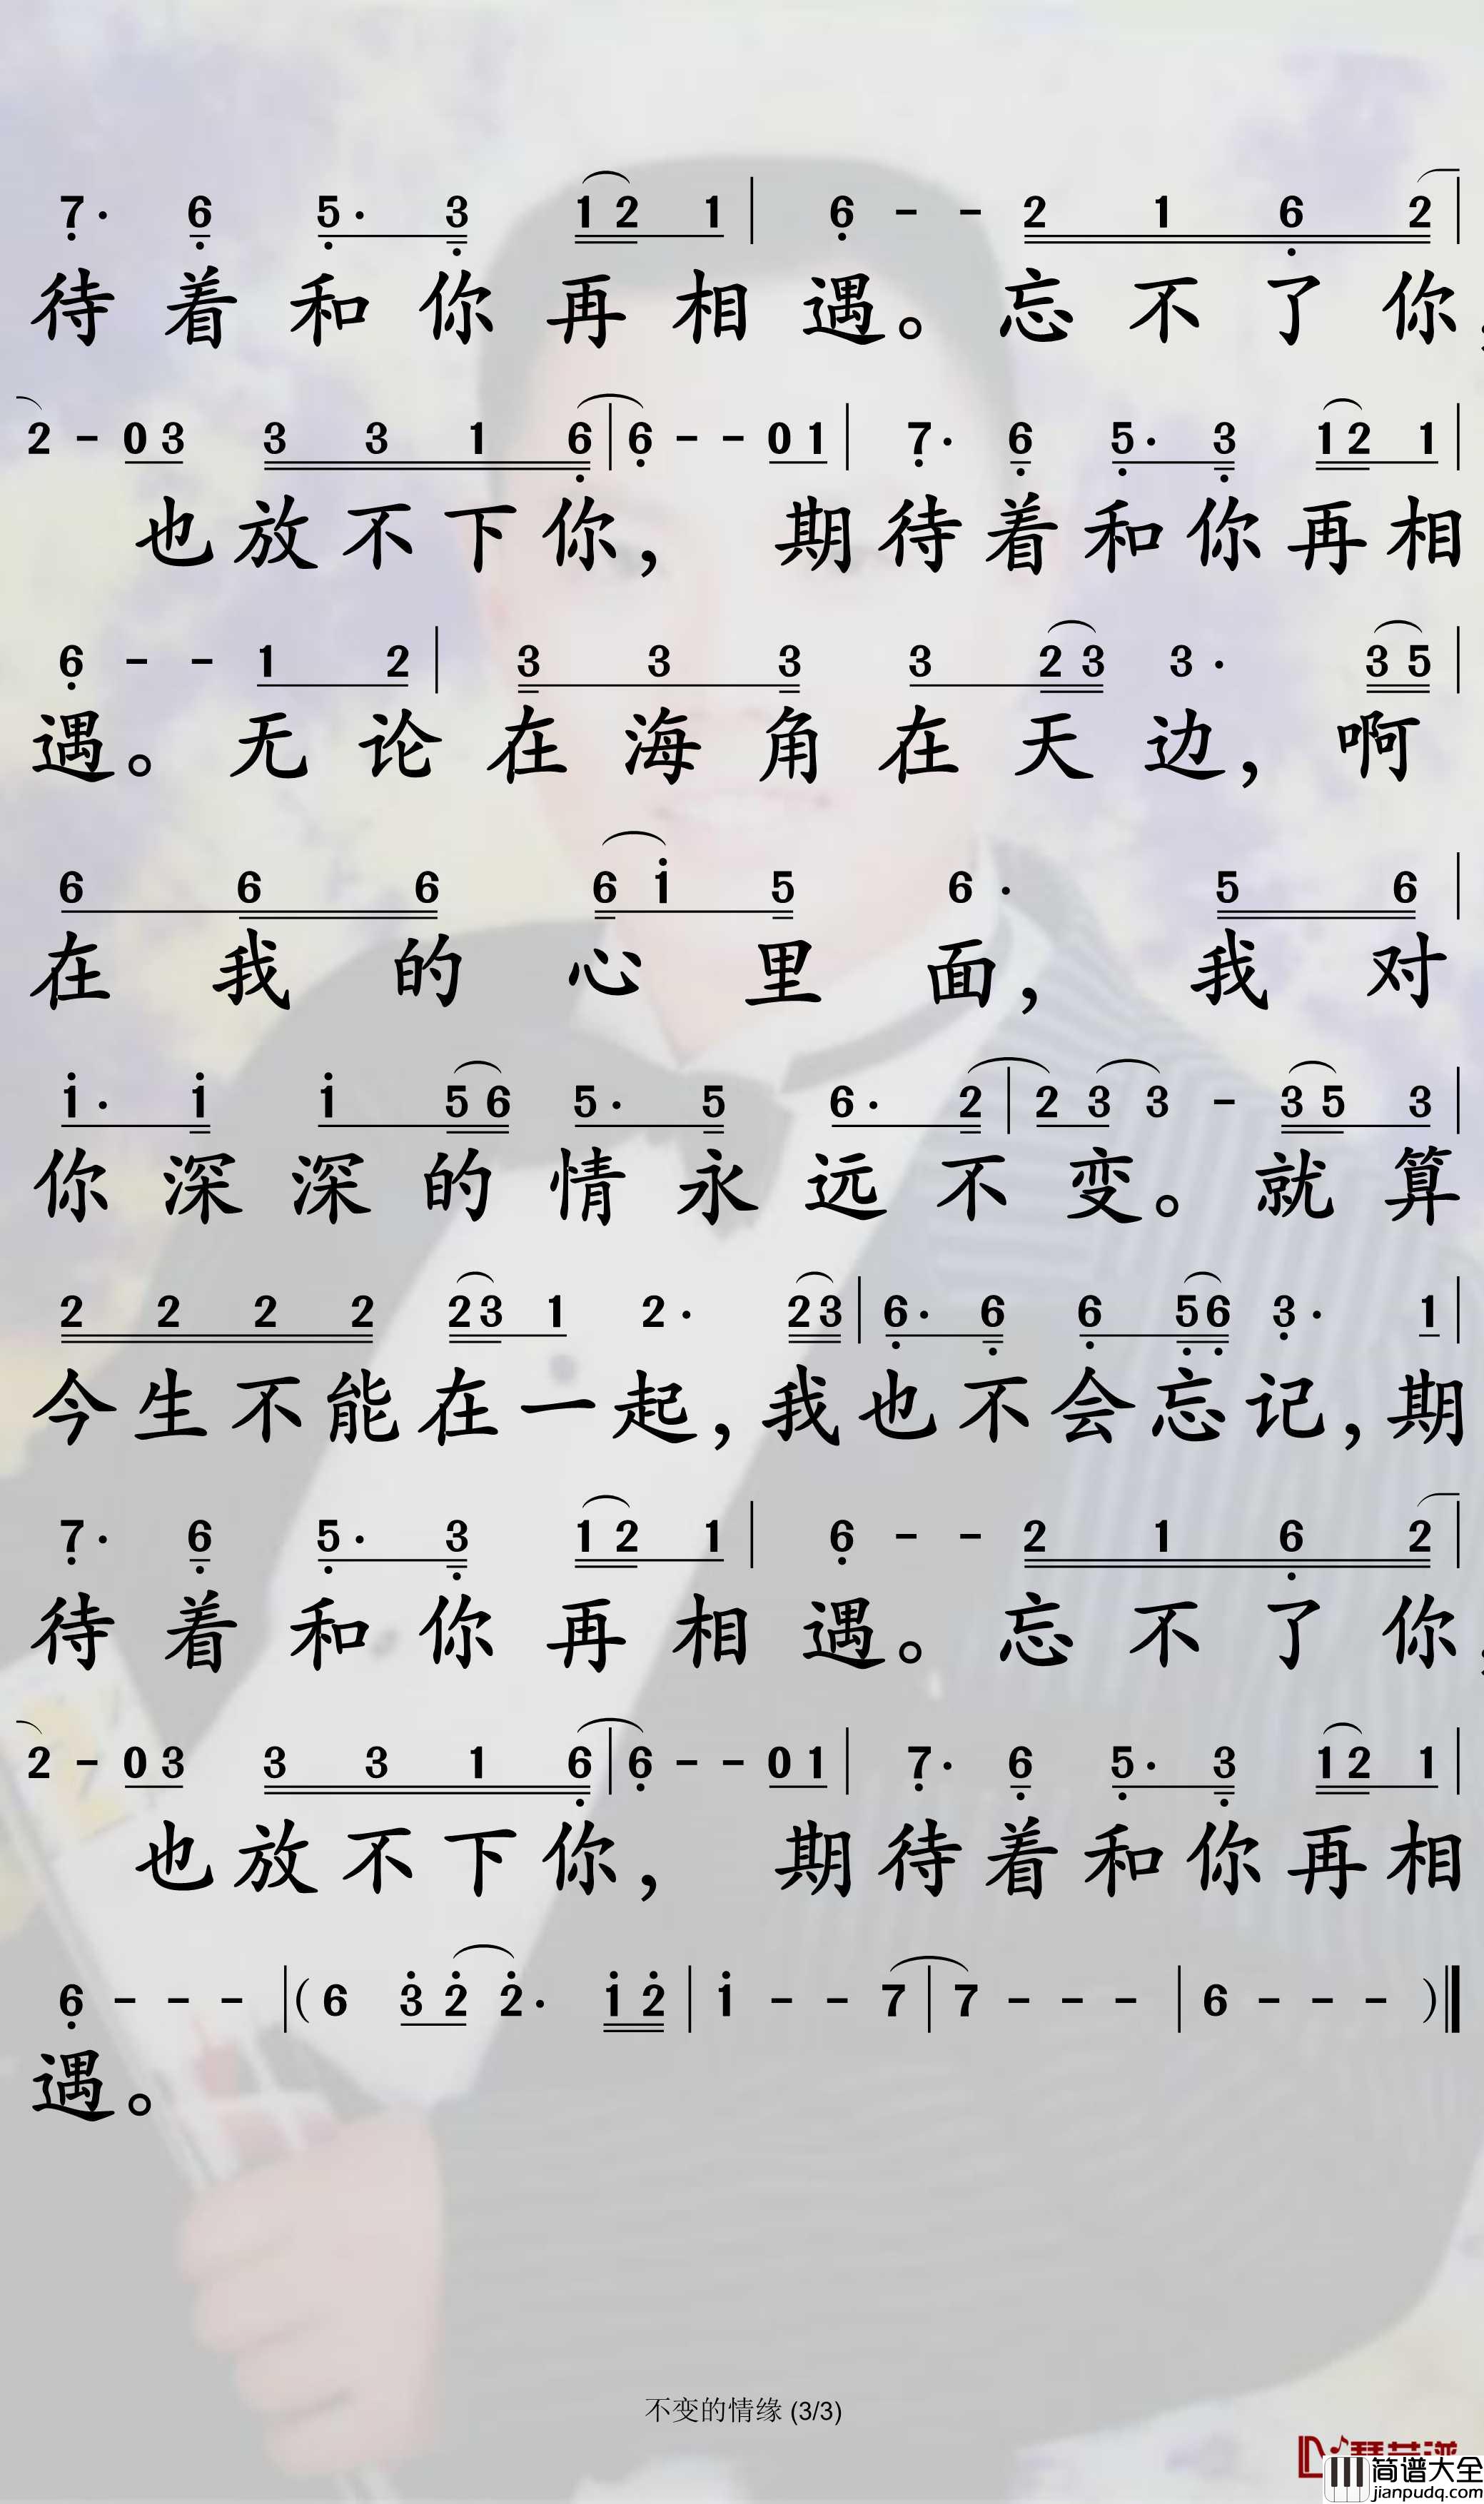 7· 6 5· 3 1 2 1 | 6 - - 2 1 6 2 |
待着和你再相遇。忘不了你，
2 - 0 3 3 3 1 6 | 6 - - 0 1 | 7· 6 5· 3 1 2 1 |
也放不下你， 期待着和你再相
6 - - 1 2 | 3 3 3 3 2 3 3· 3 5 |
遇。无论在海角在天边，啊
6 6 6 6 1 5 6· 5 6 |
在我的心里面， 我对
1· 1 1 5 6 5· 5 6· 2 | 2 3 3 - 3 5 3 |
你深深的情永远不变。就算
2 2 2 2 2 3 1 2· 2 3 | 6· 6 6 5 6 3· 1 |
今生不能在一起，我也不会忘记，期
7· 6 5· 3 1 2 1 | 6 - - 2 1 6 2 |
待着和你再相遇。忘不了你，
2 - 0 3 3 3 1 6 | 6 - - 0 1 | 7· 6 5· 3 1 2 1 |
也放不下你， 期待着和你再相
6 - - - | ( 6 3 2 2· 1 2 | 1 - - 7 | 7 - - - | 6 - - - )
遇。
不变的情缘 (3/3)
简谱大全
jianpudq.com